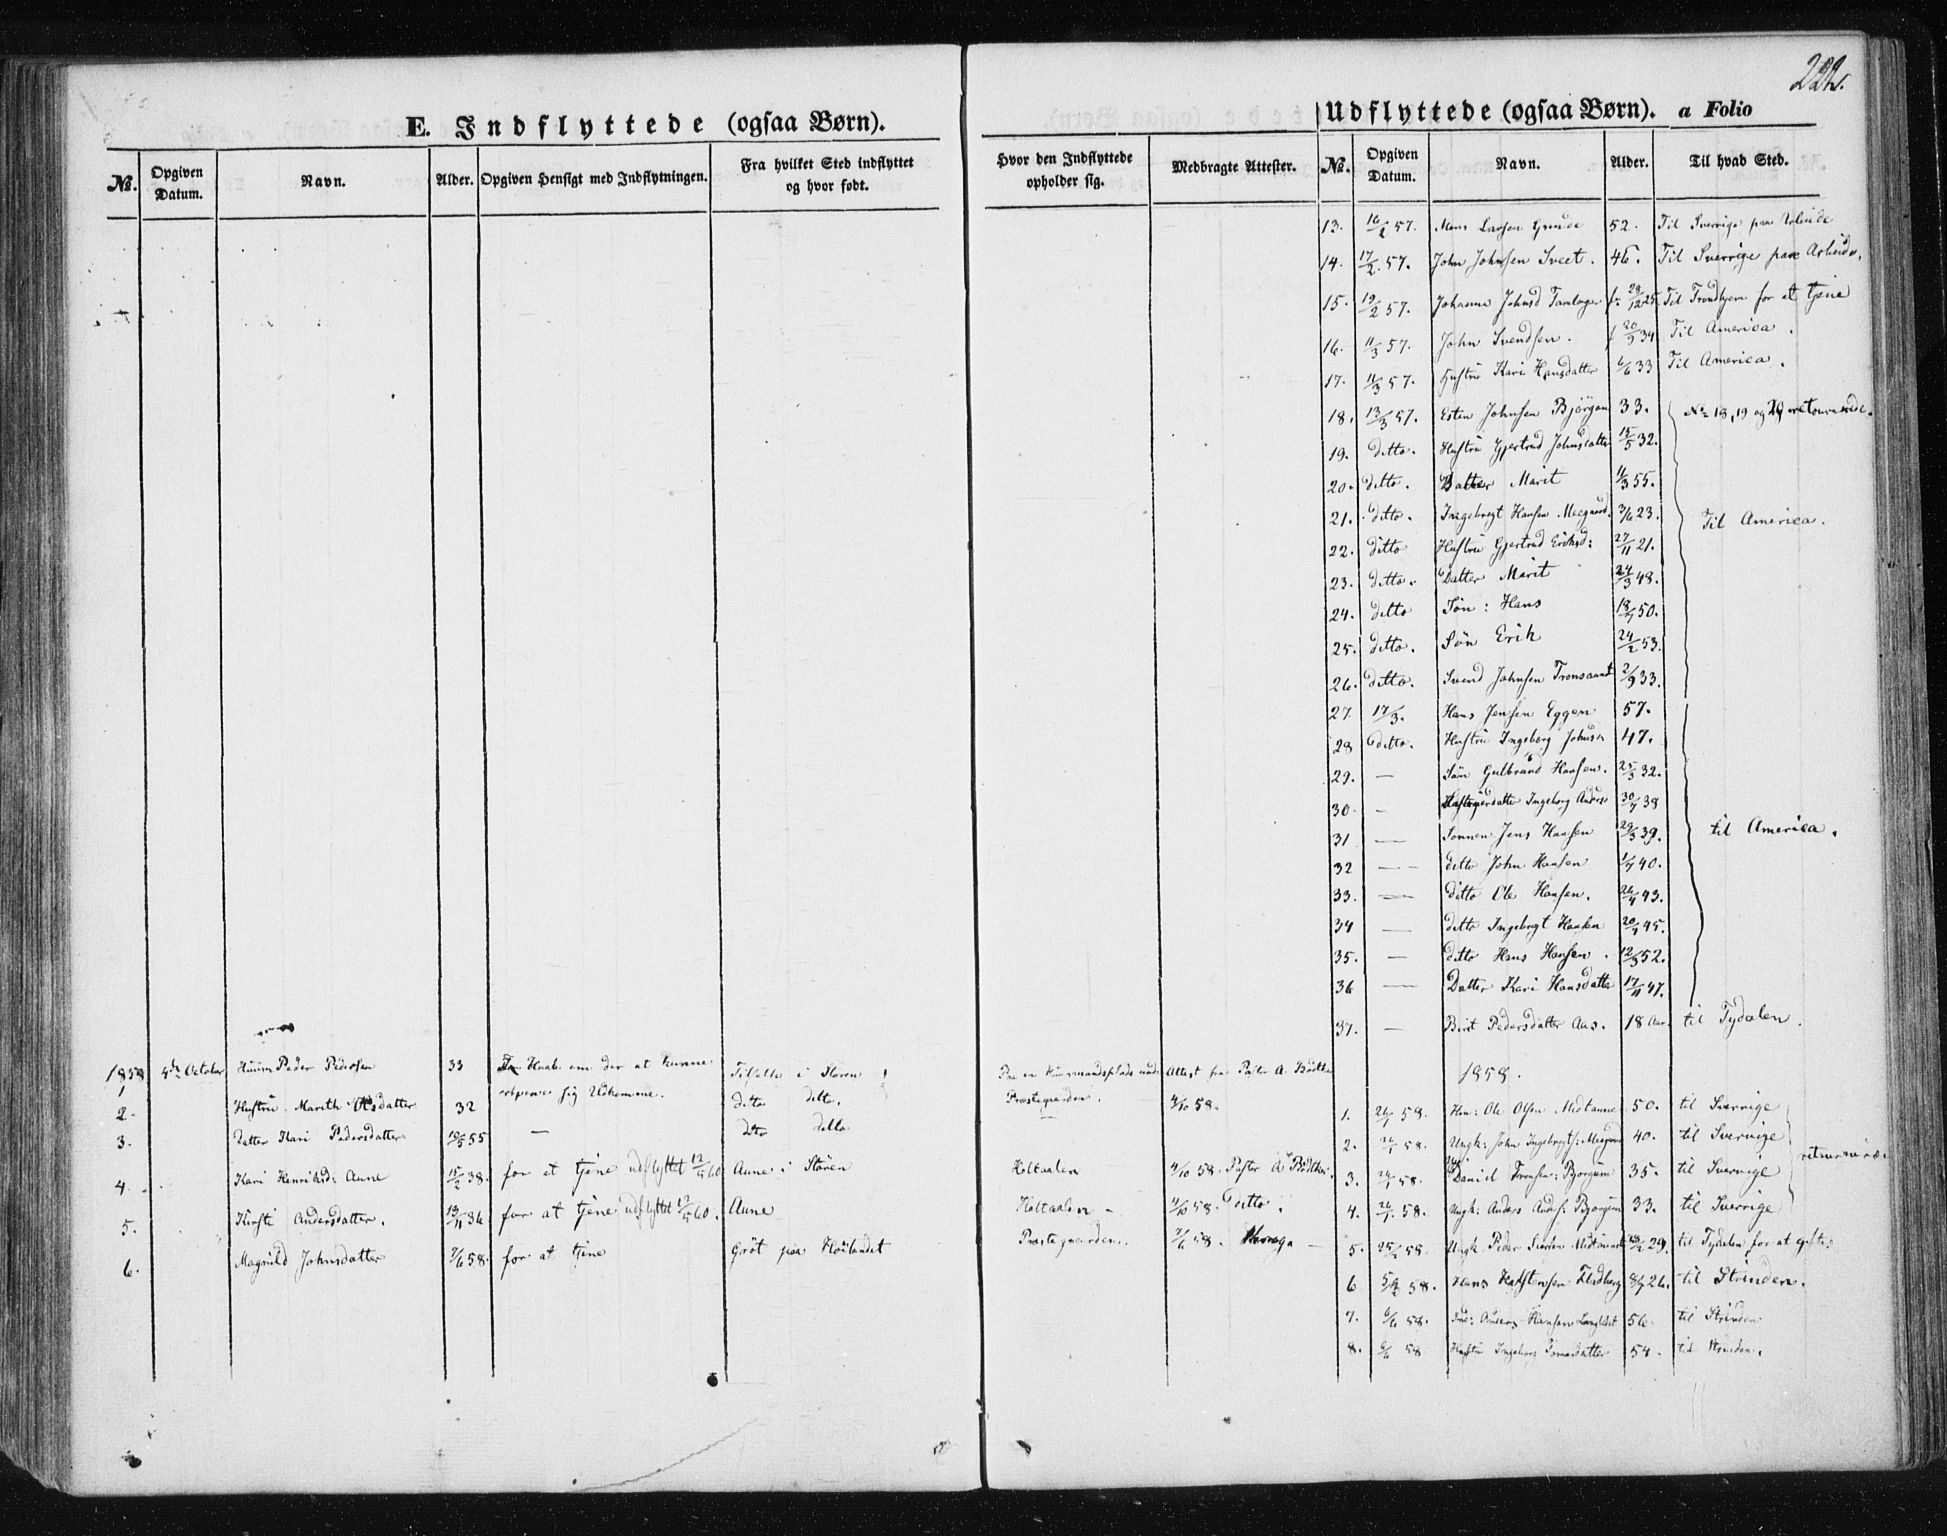 222.
E. Indflyttede (ogsaa Børn).
Udflyttede (ogsaa Børn). a Folio
No. Opgiven Datum. Navn. Alder. Opgiven Hensigt med Indflytningen. Fra hvilket Sted indflyttet og hvor født. Hvor den Indflyttede opholder sig. Medbragte Attester. No. Opgiven Datum. Navn. Alder. Til hvad Sted.
13. 16/2 57. Mons Larsen 52. Til Sverrige paa Arbeide
14. 17/2 57. John Johnsen 46. Til Sverrige paa Arbeide.
15. 19/2 57. Johanna Johnsd f. 28/12 25. Til Trondhjem for at tjene
16. 11/3 57. John Svendsen. f 20/9 34 Til America.
17. 11/3 57. Hustru Kari Hansdatter 6/6 33 Til America.
18. 13/3 57. Esten Johnsen Bjørgen 33. No 18, 19 og 20 retournerede.
19. ditto. Hustru Gjertrud Johnsdatter 15/5 32.
20. ditto. Datter Marit 11/3 55.
21. ditto. Ingebregt Hansen 3/6 23. Til America.
22. ditto Hustru Gjertrud Eriksd: 27/11 21.
23. ditto. Datter Marit 24/3 48.
24. ditto Søn: Hans 18/7 50.
25. ditto. Søn Erik 24/2 53.
26. ditto. Svend Johnsen 2/9 33.
27 17/3. Hans Jensen Eggen 57.
28 ditto. Hustru Ingeborg Johnsd 47.
29. — Søn Gulbrand Hansen. 25/3 32.
30 - Ingeborg Anders 30/7 38
31 — Sønnen Jens Hansen 29/3 39. til America.
32 — ditto John Hansen 1/7 40.
33. — ditto Ole Hansen. 26/4 43.
34 — ditto Ingebregt Hansen 20/7 45.
35. — ditto Hans Hansen. 12/3 52.
36 — Datter Kari Hansdatter 17/11 47.
37. — Birit Pedersdatter Aas. 18 Aar. til Tydalen.
1858 1 4de October Peder Pedersen 33 Haab om der at kunne Tilfelle i Støren Paa en Huusmandsplads under Attest fra Pastor A. Bødtker
sig Udkomme. 1858.
2. Hustru Mareth Olsdatter 32 ditto ditto. Præstegaarden. 4/10 58.
1. 24/1 58. Ole Olsen Midtaune 50. til Sverrige
3. Datter Kari Pedersdatter 10/5 55 — dto ditto
2. 24/1 58. Ungk: John Ingebregts: 40. til Sverrige
4. Kari Henriksd: Aune 15/2 38. for at tjene udflyttet 12/5 60 Aune i Støren Holtaalen 4/10 58. Pastor A Bødtker.
3. 24/1 58. Daniel Bjørgum 35. til Sverrige
5. Kirsti Andersdatter. 13/11 36 for at tjene udflyttet 12/5 60. Aune Holtaalen - 4/10 58. ditto.
4. 24/1 58. Ungk: Anders Bjørgum 33. til Sverrige
6. Magnild Johnsdatter 7/6 58. for at tjene Grøt paa Høilandet Præstegaarden. 7/6 58.
5. 25/2 58. Ungk Peder 29. til Tydalen for at giftes
6 58. Hans 26. til Strinden.
7. 6/6 58. Anders Hansen 56. til Strinden
8. 6/6 58 Hustru Ingeborg 54. til Strinden.